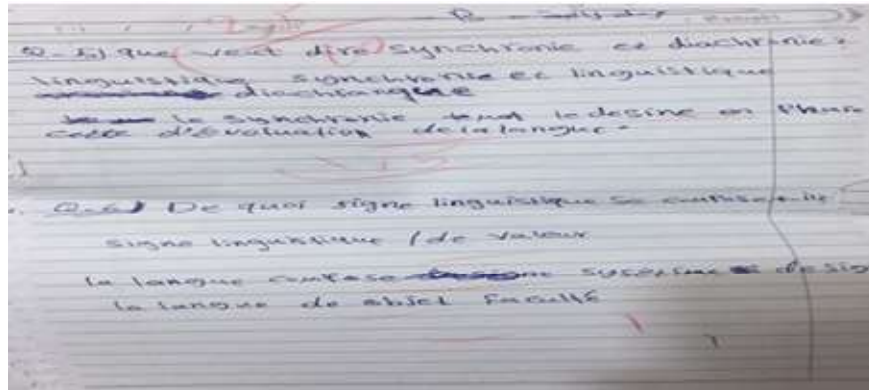 Q-5) que veut dire synchronie et diachronie.
linguistique synchronie et linguistique
diachronique
la synchronie le desine en Phase
cette d'évaluation de la langue.
Q-6) De quoi signe linguistique se
signe linguistique / de valeur
la langue système de sig
la langue de objet Faculté